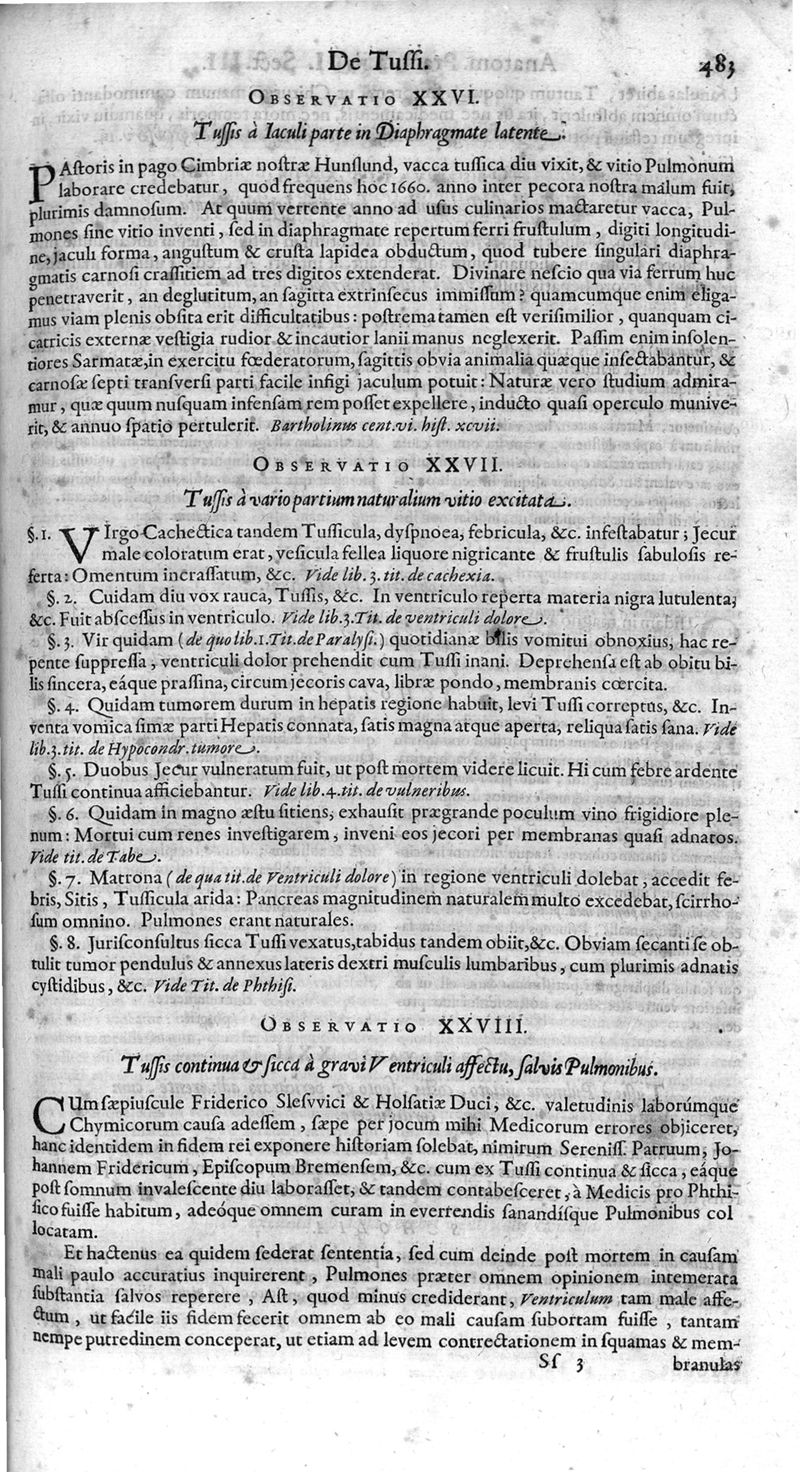 De Tuſſi. 483
OBSERVATIO XXVI.
Tuſſis à Iaculi parte in Diaphragmate latente.
PAſtoris in pago Cimbriæ noſtræ Hunſlund, vacca tuſſica diu vixit, & vitio Pulmonum
laborare credebatur, quod frequens hoc 1660. anno inter pecora noſtra malum fuit,
plurimis damnoſum. At quum vertente anno ad uſus culinarios mactaretur vacca, Pul-
mones ſine vitio inventi, ſed in diaphragmate repertum ferri fruſtulum, digiti longitudi-
ne, jaculi forma, anguſtum & cruſta lapidea obductum, quod tubere ſingulari diaphra-
gmatis carnoſi craſſitiem ad tres digitos extenderat. Divinare neſcio qua via ferrum huc
penetraverit, an deglutitum, an ſagitta extrinſecus immiſſum? quamcumque enim eliga-
mus viam plenis obſita erit difficultatibus: poſtrema tamen eſt veriſimilior, quanquam ci-
catricis externæ veſtigia rudior & incautior lanii manus neglexerit. Paſſim enim inſolen-
tiores Sarmatæ, in exercitu fœderatorum, ſagittis obvia animalia quæque inſectabantur, &
carnoſæ ſepti tranſverſi parti facile infigi jaculum potuit: Naturæ vero ſtudium admira-
mur, quæ quum nuſquam infenſam rem poſſet expellere, inducto quaſi operculo munive-
rit, & annuo ſpatio pertulerit. Bartholinus cent. vi. hiſt. xcvii.
OBSERVATIO XXVII.
Tuſſis à vario partium naturalium vitio excitata.
§. 1. VIrgo Cachectica tandem Tuſſicula, dyſpnoea, febricula, &c. infeſtabatur; Jecur
male coloratum erat, veſicula fellea liquore nigricante & fruſtulis ſabuloſis re-
ferta: Omentum incraſſatum, &c. Vide lib. 3. tit. de cachexia.
§. 2. Cuidam diu vox rauca, Tuſſis, &c. In ventriculo reperta materia nigra lutulenta,
&c. Fuit abſceſſus in ventriculo. Vide lib. 3. Tit. de ventriculi dolore.
§. 3. Vir quidam (de quo lib. 1. Tit. de Paralyſi.) quotidianæ bilis vomitui obnoxius, hac re-
pente ſuppreſſa, ventriculi dolor prehendit cum Tuſſi inani. Deprehenſa eſt ab obitu bi-
lis ſincera, eáque praſſina, circum jecoris cava, libræ pondo, membranis coërcita.
§. 4. Quidam tumorem durum in hepatis regione habuit, levi Tuſſi correptus, &c. In-
venta vomica ſimæ parti Hepatis connata, ſatis magna atque aperta, reliqua ſatis ſana. Vide
lib. 3. tit. de Hypocondr. tumore.
§. 5. Duobus Jecur vulneratum fuit, ut poſt mortem videre licuit. Hi cum febre ardente
Tuſſi continua afficiebantur. Vide lib. 4. tit. de vulneribus.
§. 6. Quidam in magno æſtu ſitiens, exhauſit prægrande poculum vino frigidiore ple-
num: Mortui cum renes inveſtigarem, inveni eos jecori per membranas quaſi adnatos.
Vide tit. de Tabe.
§. 7. Matrona (de qua tit. de Ventriculi dolore) in regione ventriculi dolebat, accedit fe-
bris, Sitis, Tuſſicula arida: Pancreas magnitudinem naturalem multo excedebat, ſcirrho-
ſum omnino. Pulmones erant naturales.
§. 8. Juriſconſultus ſicca Tuſſi vexatus, tabidus tandem obiit, &c. Obviam ſecanti ſe ob-
tulit tumor pendulus & annexus lateris dextri muſculis lumbaribus, cum plurimis adnatis
cyſtidibus, &c. Vide Tit. de Phthiſi.
OBSERVATIO XXVIII.
Tuſſis continua & ſicca à gravi Ventriculi affectu, ſalvis Pulmonibus.
CUm ſæpiuſcule Friderico Sleſvvici & Holſatiæ Duci, &c. valetudinis laborúmque
Chymicorum cauſa adeſſem, ſæpe per jocum mihi Medicorum errores objiceret,
hanc identidem in fidem rei exponere hiſtoriam ſolebat, nimirum Sereniſſ. Patruum, Jo-
hannem Fridericum, Epiſcopum Bremenſem, &c. cum ex Tuſſi continua & ſicca, eáque
poſt ſomnum invaleſcente diu laboraſſet, & tandem contabeſceret, à Medicis pro Phthi-
ſico fuiſſe habitum, adeóque omnem curam in evertendis ſanandíſque Pulmonibus col
locatam.
Et hactenus ea quidem ſederat ſententia, ſed cum deinde poſt mortem in cauſam
mali paulo accuratius inquirerent, Pulmones præter omnem opinionem intemerata
ſubſtantia ſalvos reperere, Aſt, quod minus crediderant, Ventriculum tam male affe-
ctum, ut facile iis fidem fecerit omnem ab eo mali cauſam ſubortam fuiſſe, tantam
nempe putredinem conceperat, ut etiam ad levem contrectationem in ſquamas & mem-
Sſ 3 branulas